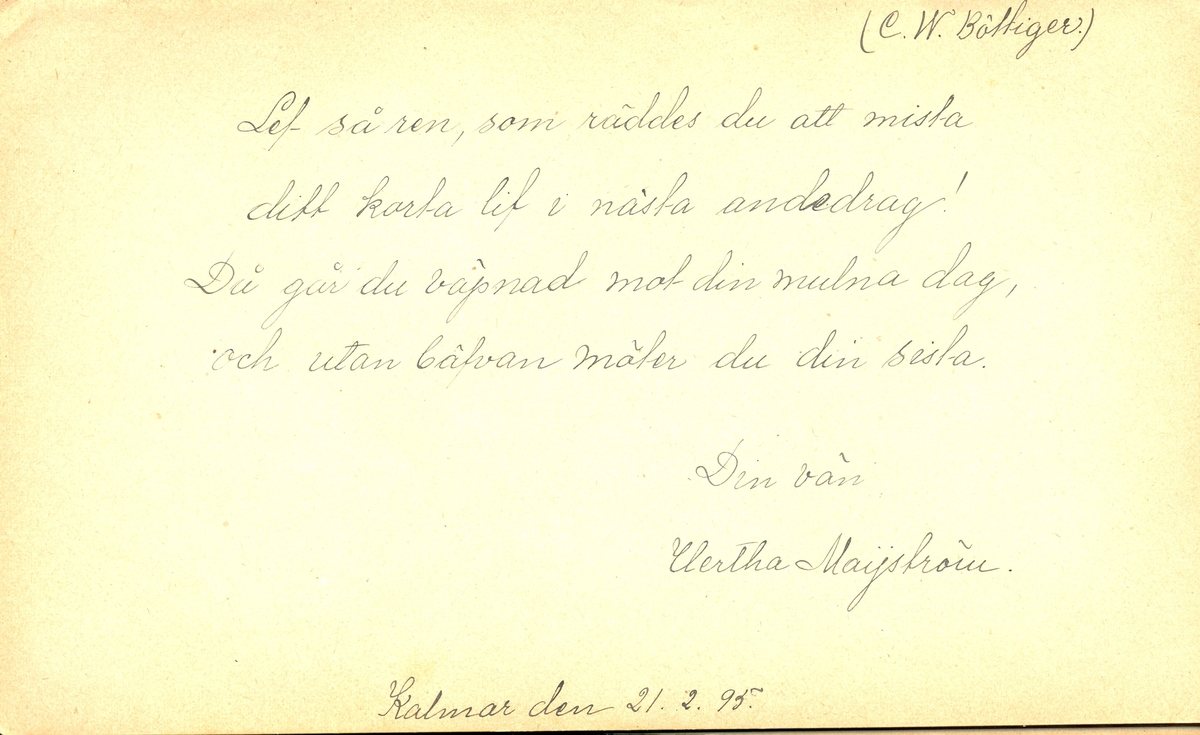 (C. W. Böttiger.)
Lef så ren, som räddes du att mista
ditt korta lif i nästa andedrag!
Då går du väpnad mot din mulna dag,
och utan bäfvan möter du din sista.
Din vän
Hertha Maijström.
Kalmar den 21. 2. 95.